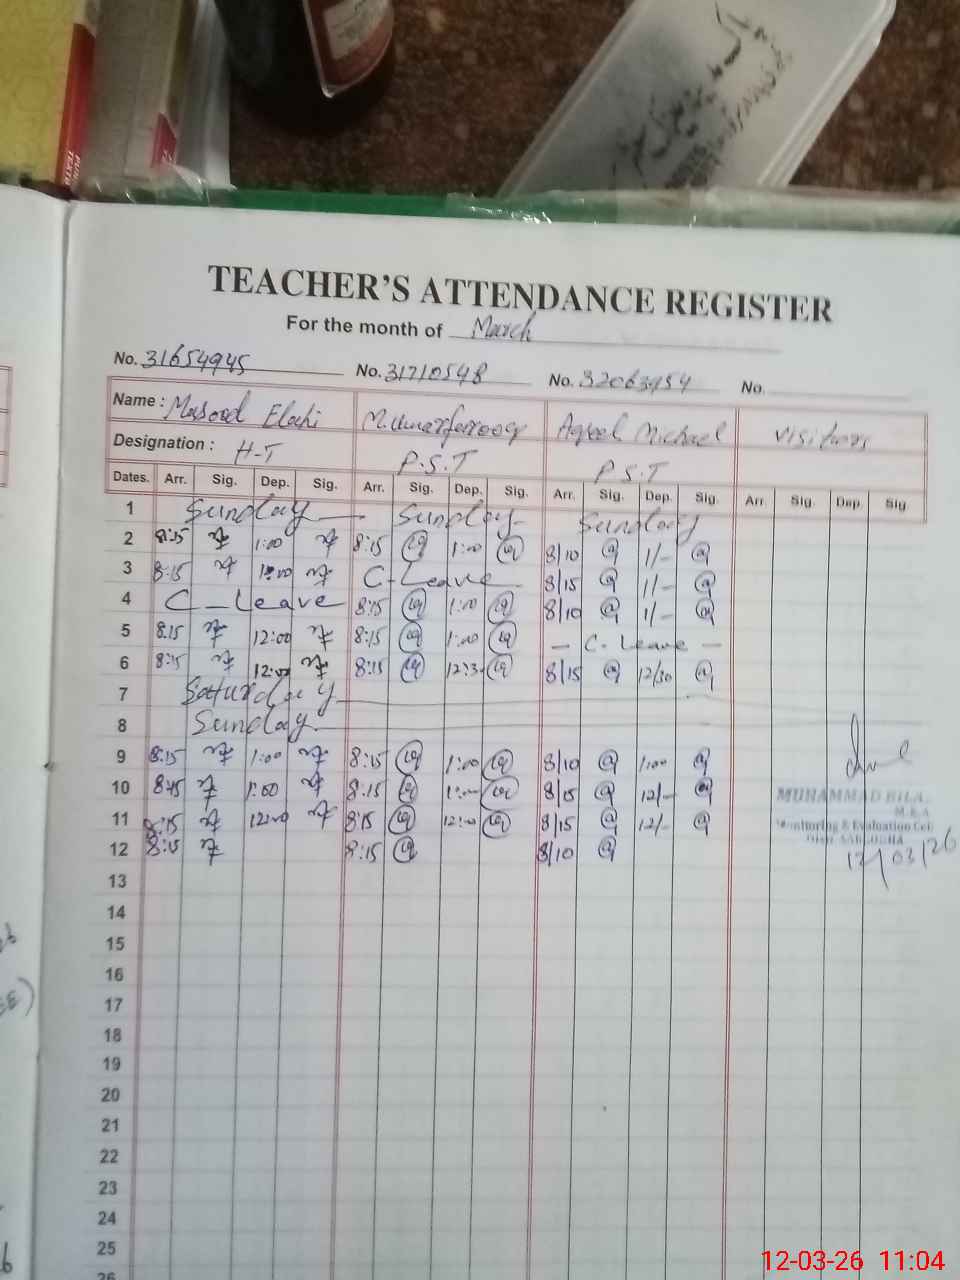 TEACHER'S ATTENDANCE REGISTER
For the month of March
No. 31654945 No. 31710548 No. 32063954 No.
Name : Masood Elahi M.Umarfarooq Aqeel Michael visitors
Designation : H-T P.S.T P.S.T
Dates. Arr. Sig. Dep. Sig. Arr. Sig. Dep. Sig. Arr. Sig. Dep. Sig. Arr. Sig. Dep. Sig.
1 Sunday Sunday Sunday
2 8:15 1:00 8:15 1:00 8/10 1/-
3 8:15 1:00 C-Leave 8/15 1/-
4 C-Leave 8:15 1:00 8/10 1/-
5 8:15 12:00 8:15 1:00 - C. Leave -
6 8:15 12:00 8:15 12:30 8/15 12/30
7 Saturday
8 Sunday
9 8:15 1:00 8:15 1:00 8/10 1:00
10 8:45 1:00 8:15 1:00 8/15 12/-
11 8:15 12:00 8:15 12:00 8/15 12/-
12 8:15 8:15 8/10
MUHAMMAD BILA
M.E.A
Monitoring & Evaluation Cell
12/03/26
13
14
15
16
17
18
19
20
21
22
23
24
25
26
12-03-26 11:04